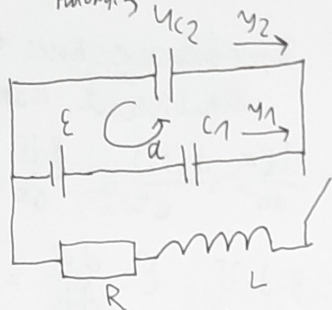 UC2 y2
ε C1 y1
a
R L